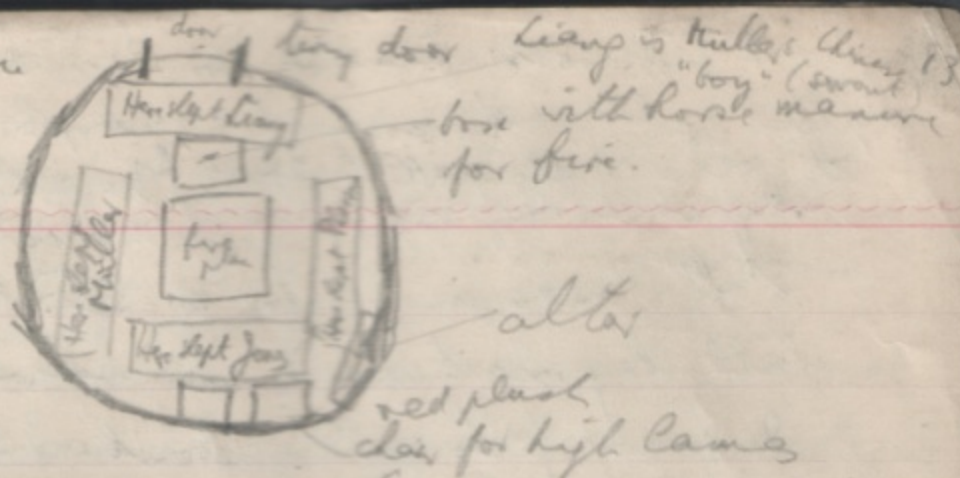 door
tiny door
Liang is Müller's Chinese 13
"boy" (servant)
Here slept Liang
box with horse manure
for fire.
Here slept Müller
fire
Here slept
altar
Here slept Joerg
red plush
chair for high Lamas